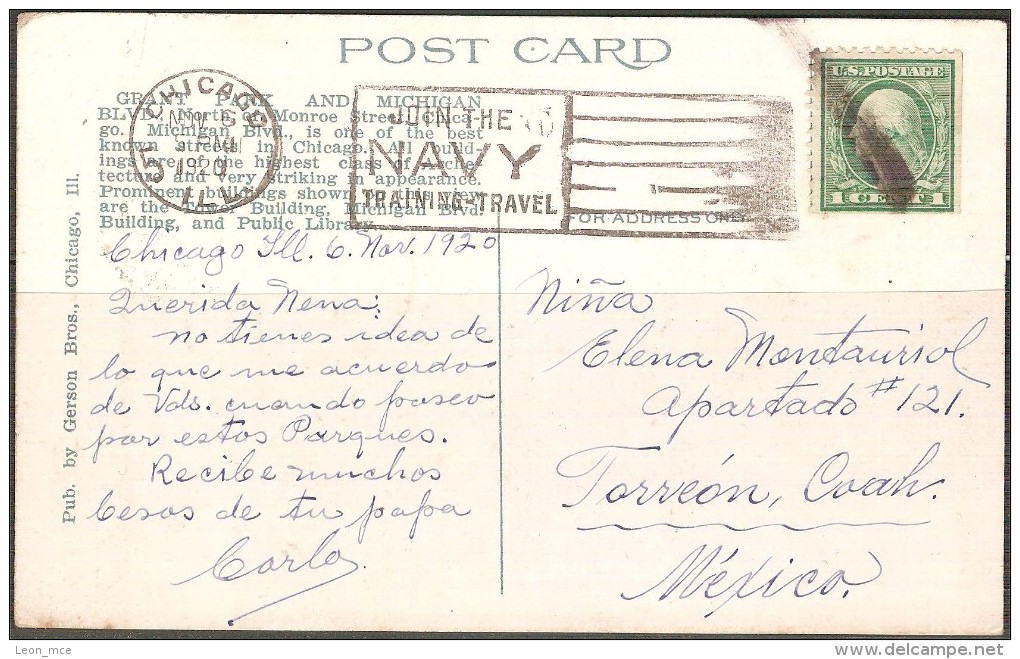 POST CARD
GRANT PARK AND MICHIGAN
BLVD., North Monroe Street, Chica-
go. Michigan Blvd., is one of the best
known streets in Chicago. All build-
ings are of the highest class of Archi-
tecture and very striking in appearance.
Prominent buildings shown in
are the Building, Michigan Blvd.
Building, and Public Library.
CHICAGO
NOV 6
PM
1920
ILL.
JOIN THE
NAVY
TRAINING-TRAVEL
FOR ADDRESS ONLY
U.S. POSTAGE
1 CENT 1
Pub. by Gerson Bros., Chicago, Ill.
Chicago Ill. 6. Nov. 1920
Querida Nena:
no tienes idea de
lo que me acuerdo
de Vds. cuando paseo
por estos Parques.
Recibe muchos
besos de tu papa
Carlos
Niña
Elena Montauriol
Apartado #121.
Torreón, Coah.
México.
Leon_mce
delcampe.net